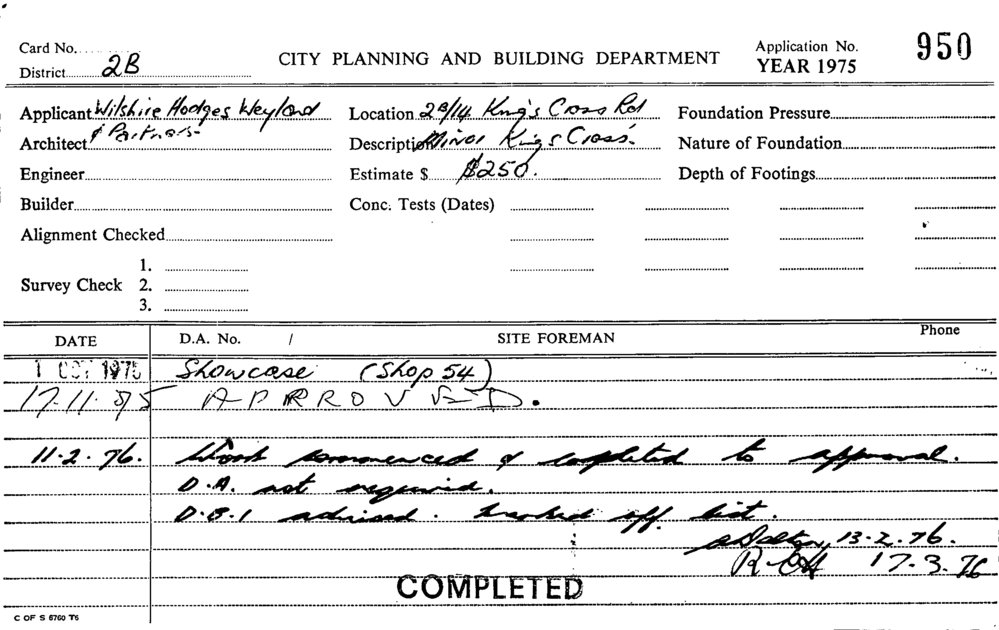 Card No.
CITY PLANNING AND BUILDING DEPARTMENT
Application No. 950
District 2B
YEAR 1975
Applicant Wilshire Hodges Weylard
Location 2B/14 King's Cross Rd
Foundation Pressure
& Partners
Architect
Description Minor King's Cross.
Nature of Foundation
Engineer
Estimate $ $250.
Depth of Footings
Builder
Conc. Tests (Dates)
Alignment Checked
1.
Survey Check 2.
3.
DATE D.A. No. / SITE FOREMAN Phone
1 OCT 1975 Showcase (Shop 54)
17.11.75 APPROVED.
11.2.76. Work commenced & completed to approval.
D.A. not required.
D.B.I advised. marked off list.
13.2.76.
17.3.76
COMPLETED
C OF S 6760 T6